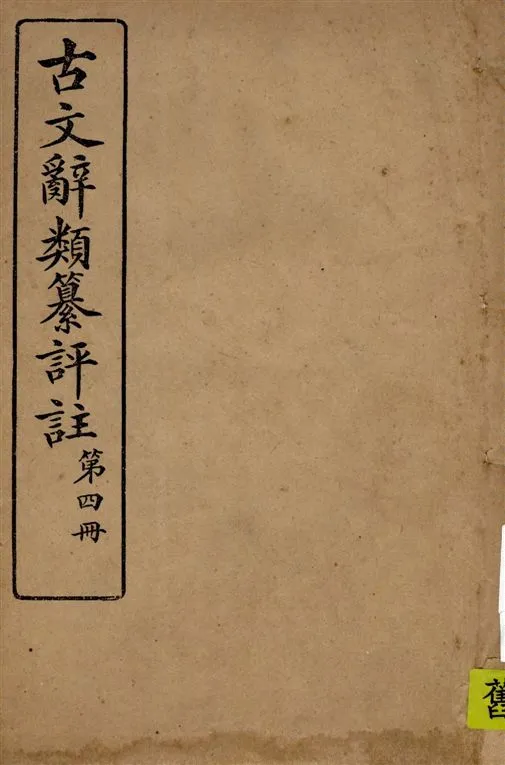 古文辭類纂評註
第四冊
舊